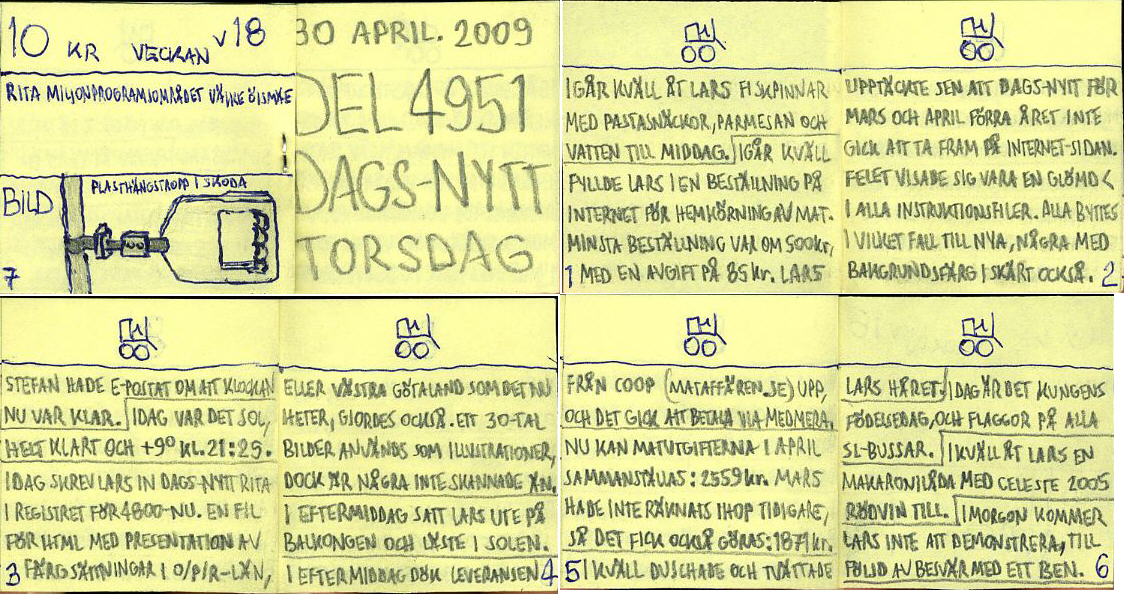 10 KR VECKAN V18
RITA MILJONPROGRAMSOMRÅDET VÄIKE ÕISMÄE
PLASTHÄNGSTROPP I SKODA
BILD
7
30 APRIL. 2009
DEL 4951
DAGS-NYTT
TORSDAG
IGÅR KVÄLL ÅT LARS FISKPINNAR
MED PASTASNÄCKOR, PARMESAN OCH
VATTEN TILL MIDDAG. IGÅR KVÄLL
FYLLDE LARS I EN BESTÄLLNING PÅ
INTERNET FÖR HEMKÖRNING AV MAT.
MINSTA BESTÄLLNING VAR OM 500kr,
1 MED EN AVGIFT PÅ 85 kr. LARS
UPPTÄCKTE SEN ATT DAGS-NYTT FÖR
MARS OCH APRIL FÖRRA ÅRET INTE
GICK ATT TA FRAM PÅ INTERNET-SIDAN.
FELET VISADE SIG VARA EN GLÖMD <
I ALLA INSTRUKTIONSFILER. ALLA BYTTES
I VILKET FALL TILL NYA, NÅGRA MED
BAKGRUNDSFÄRG I SKÄRT OCKSÅ. 2
STEFAN HADE E-POSTAT OM ATT KLOCKAN
NU VAR KLAR. IDAG VAR DET SOL,
HELT KLART OCH +9° KL. 21:25.
IDAG SKREV LARS IN DAGS-NYTT RITA
I REGISTRET FÖR 4800-NU. EN FIL
FÖR HTML MED PRESENTATION AV
3 FÄRGSÄTTNINGAR I O/P/R-LÄN,
ELLER VÄSTRA GÖTALAND SOM DET NU
HETER, GJORDES OCKSÅ. ETT 30-TAL
BILDER ANVÄNDS SOM ILLUSTRATIONER,
DOCK ÄR NÅGRA INTE SKANNADE ÄN.
I EFTERMIDDAG SATT LARS UTE PÅ
BALKONGEN OCH LÄSTE I SOLEN.
I EFTERMIDDAG DÖK LEVERANSEN 4
FRÅN COOP (MATAFFÄREN.SE) UPP,
OCH DET GICK ATT BETALA VIA MEDMERA.
NU KAN MATUTGIFTERNA I APRIL
SAMMANSTÄLLAS: 2559 kr. MARS
HADE INTE RÄKNATS IHOP TIDIGARE,
SÅ DET FICK OCKSÅ GÖRAS: 1871 kr.
5 IKVÄLL DUSCHADE OCH TVÄTTADE
LARS HÅRET. IDAG ÄR DET KUNGENS
FÖDELSEDAG, OCH FLAGGOR PÅ ALLA
SL-BUSSAR. IKVÄLL ÅT LARS EN
MAKARONILÅDA MED CELESTE 2005
RÖDVIN TILL. IMORGON KOMMER
LARS INTE ATT DEMONSTRERA, TILL
FÖLJD AV BESVÄR MED ETT BEN. 6